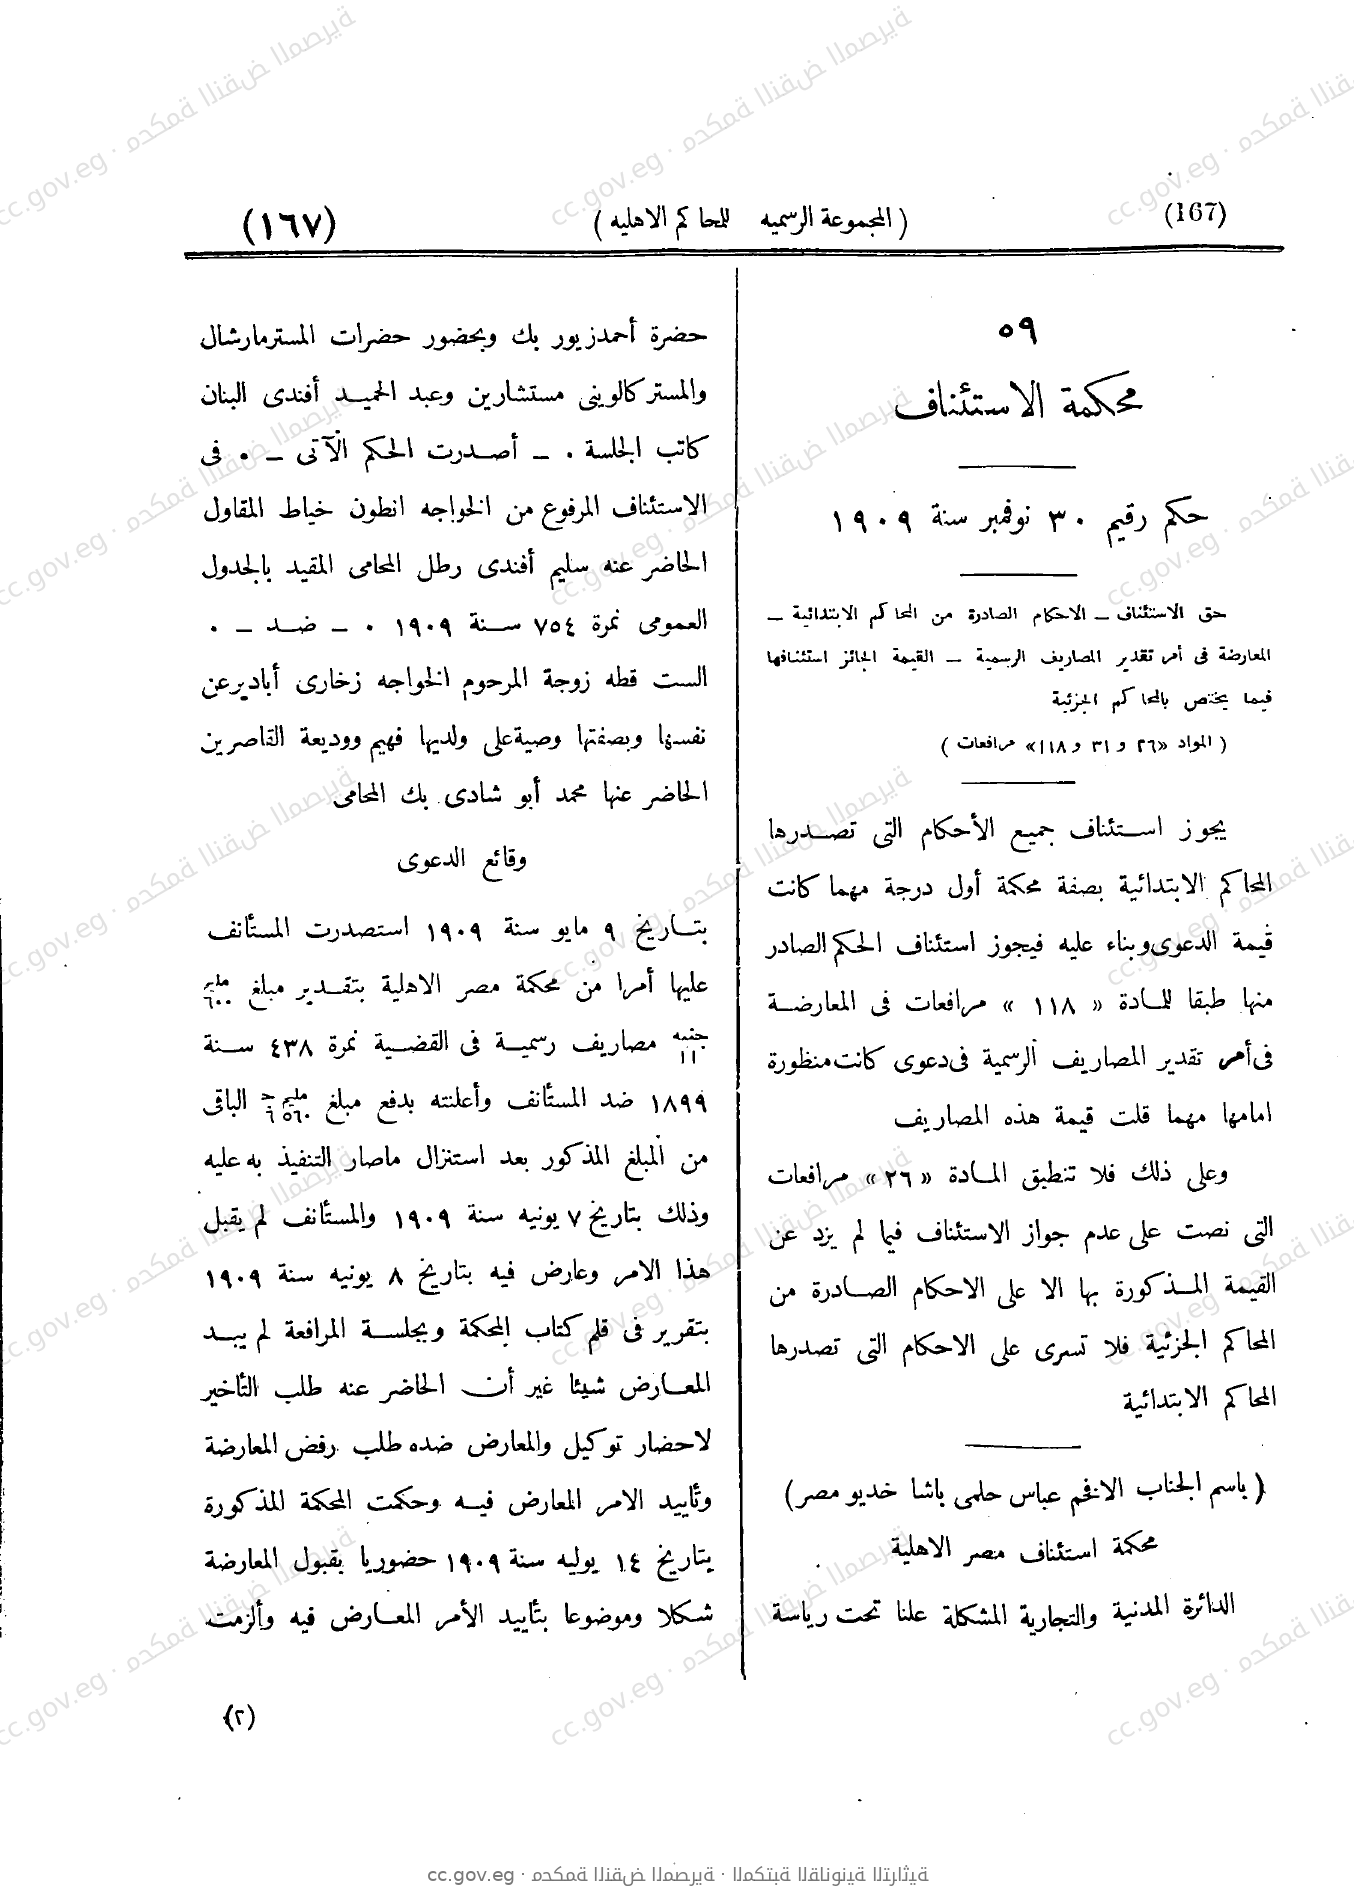 (167) ( المجموعة الرسميه للمحاكم الاهليه ) (١٦٧)
٥٩
محكمة الاستئناف
حكم رقيم ٣٠ نوفمبر سنة ١٩٠٩
حق الاستئناف – الاحكام الصادرة من المحاكم الابتدائية –
المعارضة فى أمر تقدير المصاريف الرسمية – القيمة الجائز استئنافها
فيما يختص بالمحاكم الجزئية
( المواد «٢٦ و ٣١ و ١١٨» مرافعات )
يجوز استئناف جميع الأحكام التى تصدرها
المحاكم الابتدائية بصفة محكمة أول درجة مهما كانت
قيمة الدعوى وبناء عليه فيجوز استئناف الحكم الصادر
منها طبقا للمادة « ١١٨ » مرافعات فى المعارضة
فى أمر تقدير المصاريف الرسمية فى دعوى كانت منظورة
امامها مهما قلت قيمة هذه المصاريف
وعلى ذلك فلا تنطبق المادة « ٢٦ » مرافعات
التى نصت على عدم جواز الاستئناف فيما لم يزد عن
القيمة المذكورة بها الا على الاحكام الصادرة من
المحاكم الجزئية فلا تسرى على الاحكام التى تصدرها
المحاكم الابتدائية
( باسم الجناب الافخم عباس حلمى باشا خديو مصر )
محكمة استئناف مصر الاهلية
الدائرة المدنية والتجارية المشكلة علنا تحت رياسة
حضرة أحمد زيور بك وبحضور حضرات المستر مارشال
والمستر كالوينى مستشارين وعبد الحميد أفندى البنان
كاتب الجلسة . – أصدرت الحكم الآتى – . فى
الاستئناف المرفوع من الخواجه انطون خياط المقاول
الحاضر عنه سليم أفندى رطل المحامى المقيد بالجدول
العمومى نمرة ٧٥٤ سنة ١٩٠٩ . – ضد – .
الست قطه زوجة المرحوم الخواجه زخارى أبادير عن
نفسها وبصفتها وصية على ولديها فهيم ووديعة القاصرين
الحاضر عنها محمد أبو شادى بك المحامى
وقائع الدعوى
بتاريخ ٩ مايو سنة ١٩٠٩ استصدرت المستأنف
عليها أمرا من محكمة مصر الاهلية بتقدير مبلغ مليم ٦٠٠
جنيه ١١ مصاريف رسمية فى القضية نمرة ٤٣٨ سنة
١٨٩٩ ضد المستأنف وأعلنته بدفع مبلغ مليم ٥٦٠ ج ٦ الباقى
من المبلغ المذكور بعد استنزال ماصار التنفيذ به عليه
وذلك بتاريخ ٧ يونيه سنة ١٩٠٩ والمستأنف لم يقبل
هذا الامر وعارض فيه بتاريخ ٨ يونيه سنة ١٩٠٩
بتقرير فى قلم كتاب المحكمة وبجلسة المرافعة لم يبد
المعارض شيئا غير أن الحاضر عنه طلب التأخير
لاحضار توكيل والمعارض ضده طلب رفض المعارضة
وتأييد الامر المعارض فيه وحكمت المحكمة المذكورة
بتاريخ ١٤ يوليه سنة ١٩٠٩ حضوريا بقبول المعارضة
شكلا وموضوعا بتأييد الأمر المعارض فيه وألزمت
(٢)
cc.gov.eg · محكمة النقض المصرية · المكتبة القانونية التراثية